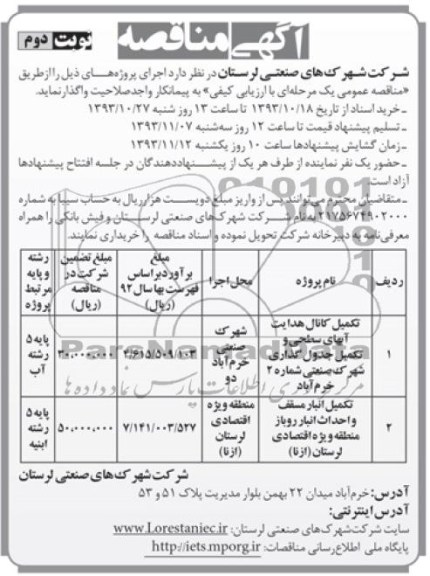 آگهی مناقصه
نوبت دوم
شرکت شهرک‌های صنعتی لرستان در نظر دارد اجرای پروژه‌های ذیل را از طریق
«مناقصه عمومی یک مرحله‌ای با ارزیابی کیفی» به پیمانکار واجد صلاحیت واگذار نماید.
- خرید اسناد از تاریخ ۱۳۹۳/۱۰/۱۸ تا ساعت ۱۳ روز شنبه ۱۳۹۳/۱۰/۲۷
- تسلیم پیشنهاد قیمت تا ساعت ۱۲ روز سه‌شنبه ۱۳۹۳/۱۱/۰۷
- زمان گشایش پیشنهادها ساعت ۱۰ روز یکشنبه ۱۳۹۳/۱۱/۱۲
- حضور یک نفر نماینده از طرف هر یک از پیشنهاددهندگان در جلسه افتتاح پیشنهادها
آزاد است.
- متقاضیان محترم می‌توانند پس از واریز مبلغ دویست هزار ریال به حساب سیبا به شماره
۲۱۷۵۶۷۴۹۰۲۰۰۰ به نام شرکت شهرک‌های صنعتی لرستان و فیش بانکی را همراه
معرفی‌نامه به دبیرخانه شرکت تحویل نموده و اسناد مناقصه را خریداری نمایند.
ردیف
نام پروژه
محل اجرا
مبلغ
برآورد براساس
فهرست بها سال ۹۲
(ریال)
مبلغ تضمین
شرکت در
مناقصه
(ریال)
رشته
و پایه
مرتبط
پروژه
۱
تکمیل کانال هدایت
آبهای سطحی و
تکمیل جدول گذاری
شهرک صنعتی شماره ۲
خرم‌آباد
شهرک
صنعتی
خرم‌آباد
دو
۳۰,۰۰۰,۰۰۰
پایه ۵
رشته
آب
۲
تکمیل انبار مسقف
و احداث انبار روباز
منطقه ویژه اقتصادی
لرستان (ازنا)
منطقه ویژه
اقتصادی
لرستان
(ازنا)
۷/۱۴۱/۰۰۳/۵۲۷
۵۰,۰۰۰,۰۰۰
پایه ۵
رشته
ابنیه
شرکت شهرک‌های صنعتی لرستان
آدرس: خرم‌آباد میدان ۲۲ بهمن بلوار مدیریت پلاک ۵۱ و ۵۳
آدرس اینترنتی:
سایت شرکت شهرک‌های صنعتی لرستان: www.Lorestaniec.ir
پایگاه ملی اطلاع رسانی مناقصات: http://iets.mporg.ir
ParsNamadData
مرکز فرآوری اطلاعات پارس نماد داده ها